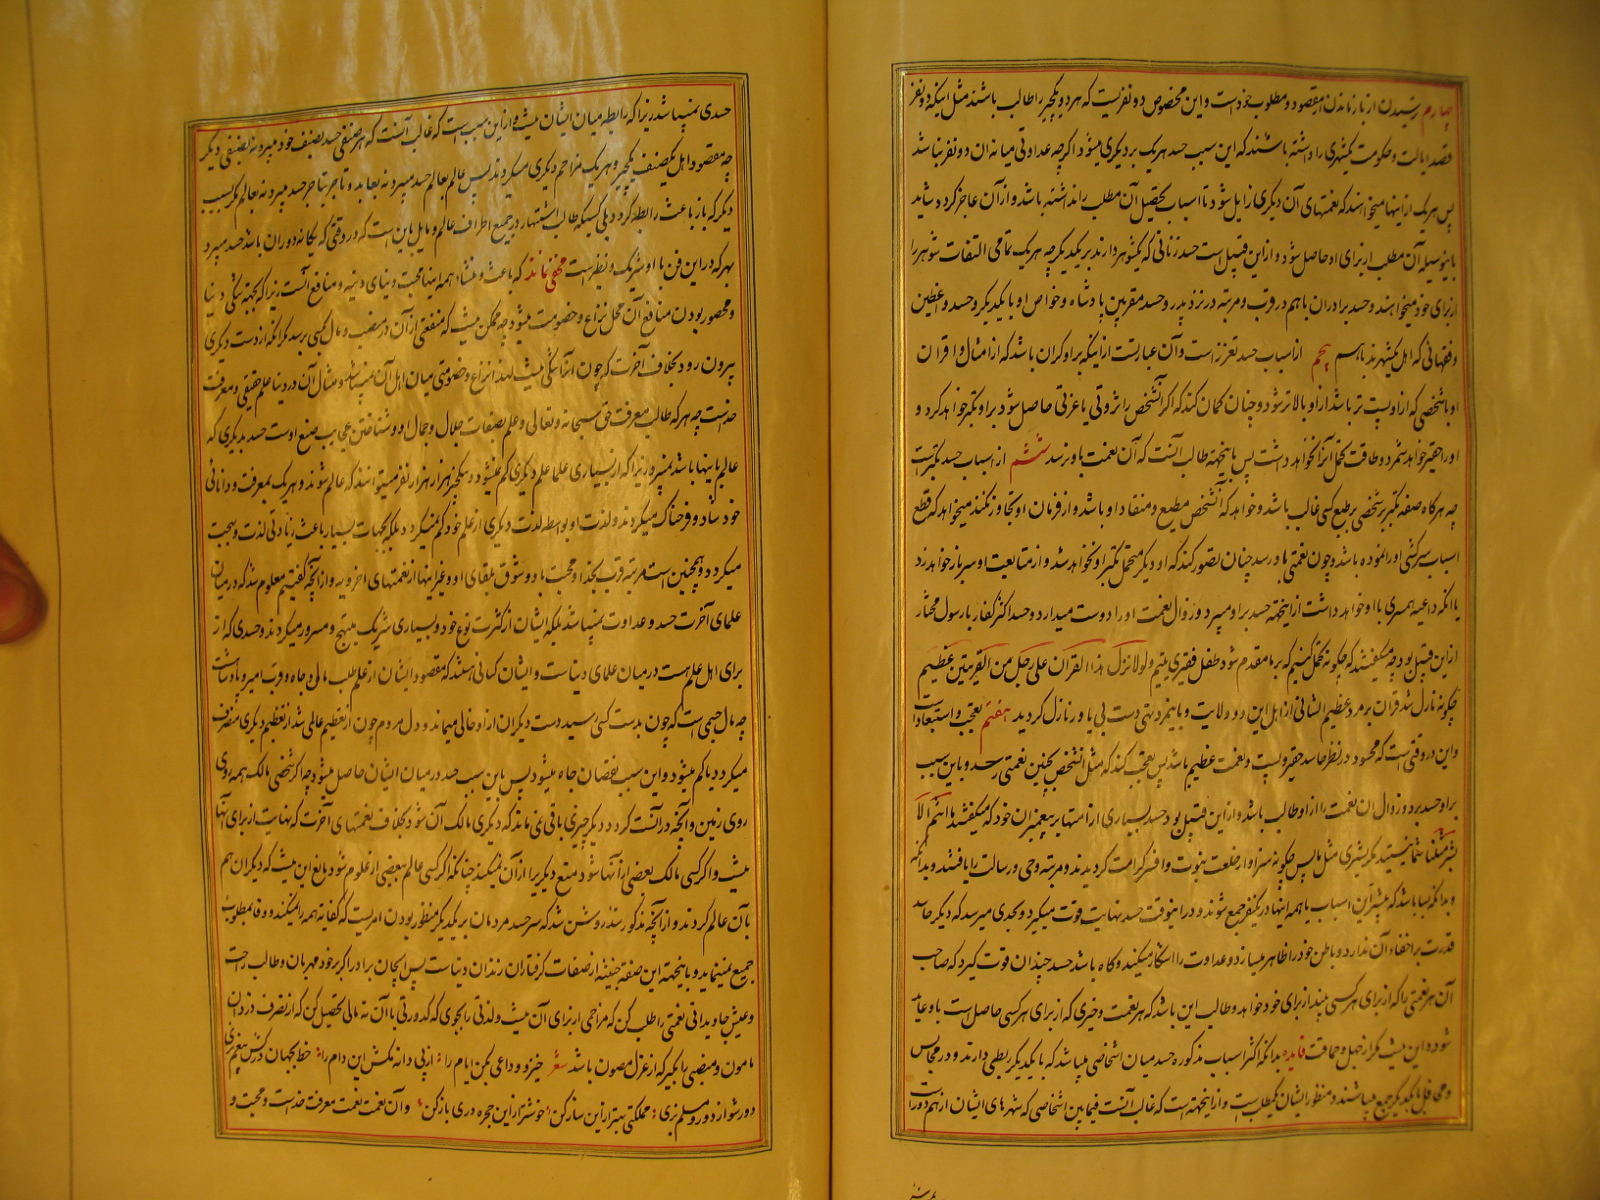 چهارم ترسیدن از بازماندن از مقصود و مطلوب خود است و این مخصوص دو نفریست که هر دو یکچیز را طالب باشند مثل اینکه دو نفر
قصد ایالت و حکومت یکشهری را داشته باشند که این سبب حسد هر یک بر دیگری میشود اگرچه عداوتی میانه آن دو نفر نباشد
پس هریک از اینها میخواهند که نعمتهای آن دیگری زایل شود تا اسباب تحصیل آن مطلب را نداشته باشد و از آن عاجز کردد شاید
باینوسیله آن مطلب از برای او حاصل شود و از این قبیل است حسد زنانی که یکشوهر دارند بر یکدیگر چه هریک تمامی التفات شوهر را
از برای خود میخواهند و حسد برادران باهم در قرب و مرتبه در نزد پدر و حسد مقربین پادشاه و خواص او با یکدیگر و حسد واعظین
و فقهائی که اهل یکشهرند باهم پنجم از اسباب حسد تعزز است و آن عبارتست از اینکه بر او کران باشد که از امثال و اقران
او یا شخصی که از او پست تر باشد از او بالاتر شود و چنان کمان کند که اگر آنشخص را ثروتی یا عزتی حاصل شود بر او تکبر خواهد کرد و
او را حقیر خواهد شمرد و طاقت تحمل آنرا نخواهد داشت پس باینجهة طالب آنست که آن نعمت باو نرسد ششم از اسباب حسد تکبر است
چه هرکاه صفه تکبر بر شخصی بر طبع کسی غالب باشد و خواهد که آنشخص مطیع و منقاد او باشد و از فرمان او تجاوز نکند میخواهد که قطع
اسباب سرکشی او را نموده باشد و چون نعمتی باو رسد چنان تصور کند که او دیگر متحمل تکبر او نخواهد شد و از متابعت او سر باز خواهد زد
یا انکه داعیه همسری با او خواهد داشت از اینجهة حسد بر او میبرد و زوال نعمت او را دوست میدارد و حسد اکثر کفار با رسول مختار
از این قبیل بود چه میکفتند که چکونه تحمل کنیم که بر ما مقدم شود طفل فقیری یتیم و لولا نزل هذا القران علی رجل من القریتین عظیم
چکونه نازل نشد قران بر مرد عظیم الشانی از اهل این دو ولایت و باینمرد تهی دست بی یاور نازل کردید هفتم تعجب و استبعاد است
و این در وقتی است که محسود در نظر حاسد حقیر و پست و نعمت عظیم باشد پس تعجب کند که مثل انشخص بچنین نعمتی رسد و باین سبب
بر او حسد برد و زوال ان نعمت را از او طالب باشد و از این قبیل بود حسد بسیاری از امتها بر پیغمبران خود که میکفتند ما انتم الا
بشر مثلنا شما نیستید مکر بشری مثل ما پس چکونه سزاوار خلعت نبوت و افسر کرامت کردیدند و مرتبه وحی و رسالت را یافتند و بدانکه
و بدانکه بسا باشد که بیشتر این اسباب یا همه اینها در یکنفر جمع شوند و در اینوقت حسد نهایت قوت میکیرد و بحدی میرسد که دیگر حاسد
قدرت بر اخفاء آن ندارد و باطن خود را ظاهر میسازد و عداوت را آشکار میکند و کاه باشد حسد چندان قوت گیرد که صاحب
آن هر نعمتی را که از برای هرکسی بیند از برای خود خواهد و طالب این باشد که هر نعمت و خیری که از برای هرکسی حاصل است باو عاید
شود و این نیست مکر از جهل و حماقت فایده بدانکه اکثر اسباب مذکوره حسد میان اشخاصی میباشد که با یکدیگر ربطی دارند و در مجالس
و محافل با یکدیگر جمع میباشند و منظور ایشان یکمطلب است و از اینجهتست که غالب آنست فیمابین اشخاصی که شهرهای ایشان از هم دور است
حسدی نمیباشد زیرا که رابطه میان ایشان نیست و از این سبب است که غالب آنست که هر صنفی حسد بصنف خود میبرد نه بصنفی دیگر
چه مقصود اهل یکصنف یکچیز و هر یک مزاحم دیگری میکردند پس عالم بعالم حسد میبرد نه بعابد و تاجر بتاجر حسد میبرد نه بعالم مکر بسبب
دیگر که باز باعث رابطه کردد بلی کسیکه طالب اشتهار در جمیع اطراف عالم و مایل باین است که در وقتی که یکانه دوران باشد حسد میبرد
بهر که در این فن با او شریک و نظیر است مخفی نماند که باعث و منشاء همه اینها محبت دنیای دنیه و منافع آنست زیرا که بجهة تنکی دنیا
و محصور بودن منافع آن محل نزاع و خصومت میشود چه ممکن نیست که منفعتی از آن در منصب و مال بکسی برسد مکر انکه از دست دیگری
بیرون رود بخلاف آخرت که چون آنرا تنکی نیست لهذا نزاع و خصومتی میان اهل آن نمیباشد و مثال آن در دنیا علم حقیقی و معرفت
خداست چه هرکه طالب معرفت حق سبحانه و تعالی و علم بصفات جلال و جمال او و شناختن عجایب صنع اوست حسد بدیگری که
عالم باینها باشد نمیبرد زیرا که از بسیاری علما علم دیگری کم نمیشود و یکچیز هزار هزار نفر میتوانند که عالم شوند و هریک بمعرفت و دانائی
خود شاد و فرحناک میکردند و لذت او بواسطه لذت دیگری از علم خود کم نمیکردد بلکه بجهات بسیار باعث زیادتی لذت و بهجت
میکردد و همچنین است مرتبه قرب بخدا و محبت باو و شوق بلقای او و غیر اینها از نعمتهای اخرویه و از آنچه کفتیم معلوم شد که در میان
علمای آخرت حسد و عداوت نمیباشد بلکه ایشان از کثرت نوع خود و بسیاری شریک مبتهج و مسرور میکردند و حسدی که از
برای اهل علم است در میان علمای دنیاست و ایشان کسانی هستند که مقصود ایشان از علم طلب مال و جاه و قرب امیر و پادشاست
چه مال جیبی است که چون بدست کسی رسید دست دیگران از او خالی میماند و دل مردم چون از تعظیم عالمی پر شد از تعظیم دیگری منصرف
میکردد یا کم میشود و این سبب نقصان جاه میشود پس باین سبب حسد در میان ایشان حاصل میشود چه اگر شخصی مالک همه روی
روی زمین و آنچه در آنست کردد دیگر چیزی باقی نمی ماند که دیگری مالک آن شود بخلاف نعمتهای آخرت که نهایت از برای آنها
نیست و اگر کسی مالک بعضی از آنها شود منع دیگریرا از آن نمیکند چنانکه اگر کسی عالم ببعضی از علوم شود مانع این نیست که دیگران هم
بان عالم کردند و از آنچه مذکور شد روشن شد که سر حسد مردمان بر یکدیگر منظور بودن امریست که کفایه همه را نمیکند و وفا بمطلوب
جمیع نمینماید و باینجهة این صفة خبیثه از صفات کرفتاران زندان دنیاست پس ایجان برادر اگر بر خود مهربان و طالب راحت
و عیش جاویدانی نعمتی را طلب کن که مزاحمی از برای آن نیست و لذتی را بجوی که کدورتی با آن نه مالی تحصیل کن که از تصرف دزدان
مامون و منصبی را بکیر که از عزل مصون باشد شعر خیز و وداعی بکن ایام را از پی دانه مکش این دام را خط بجهان درکش و بیغم بزی
دور شو از دور و مسلم بزی مملکتی بهتر از این ساز کن خوشتر از این حجره دری باز کن و آن نعمت نعمت معرفت خداست و محبت و